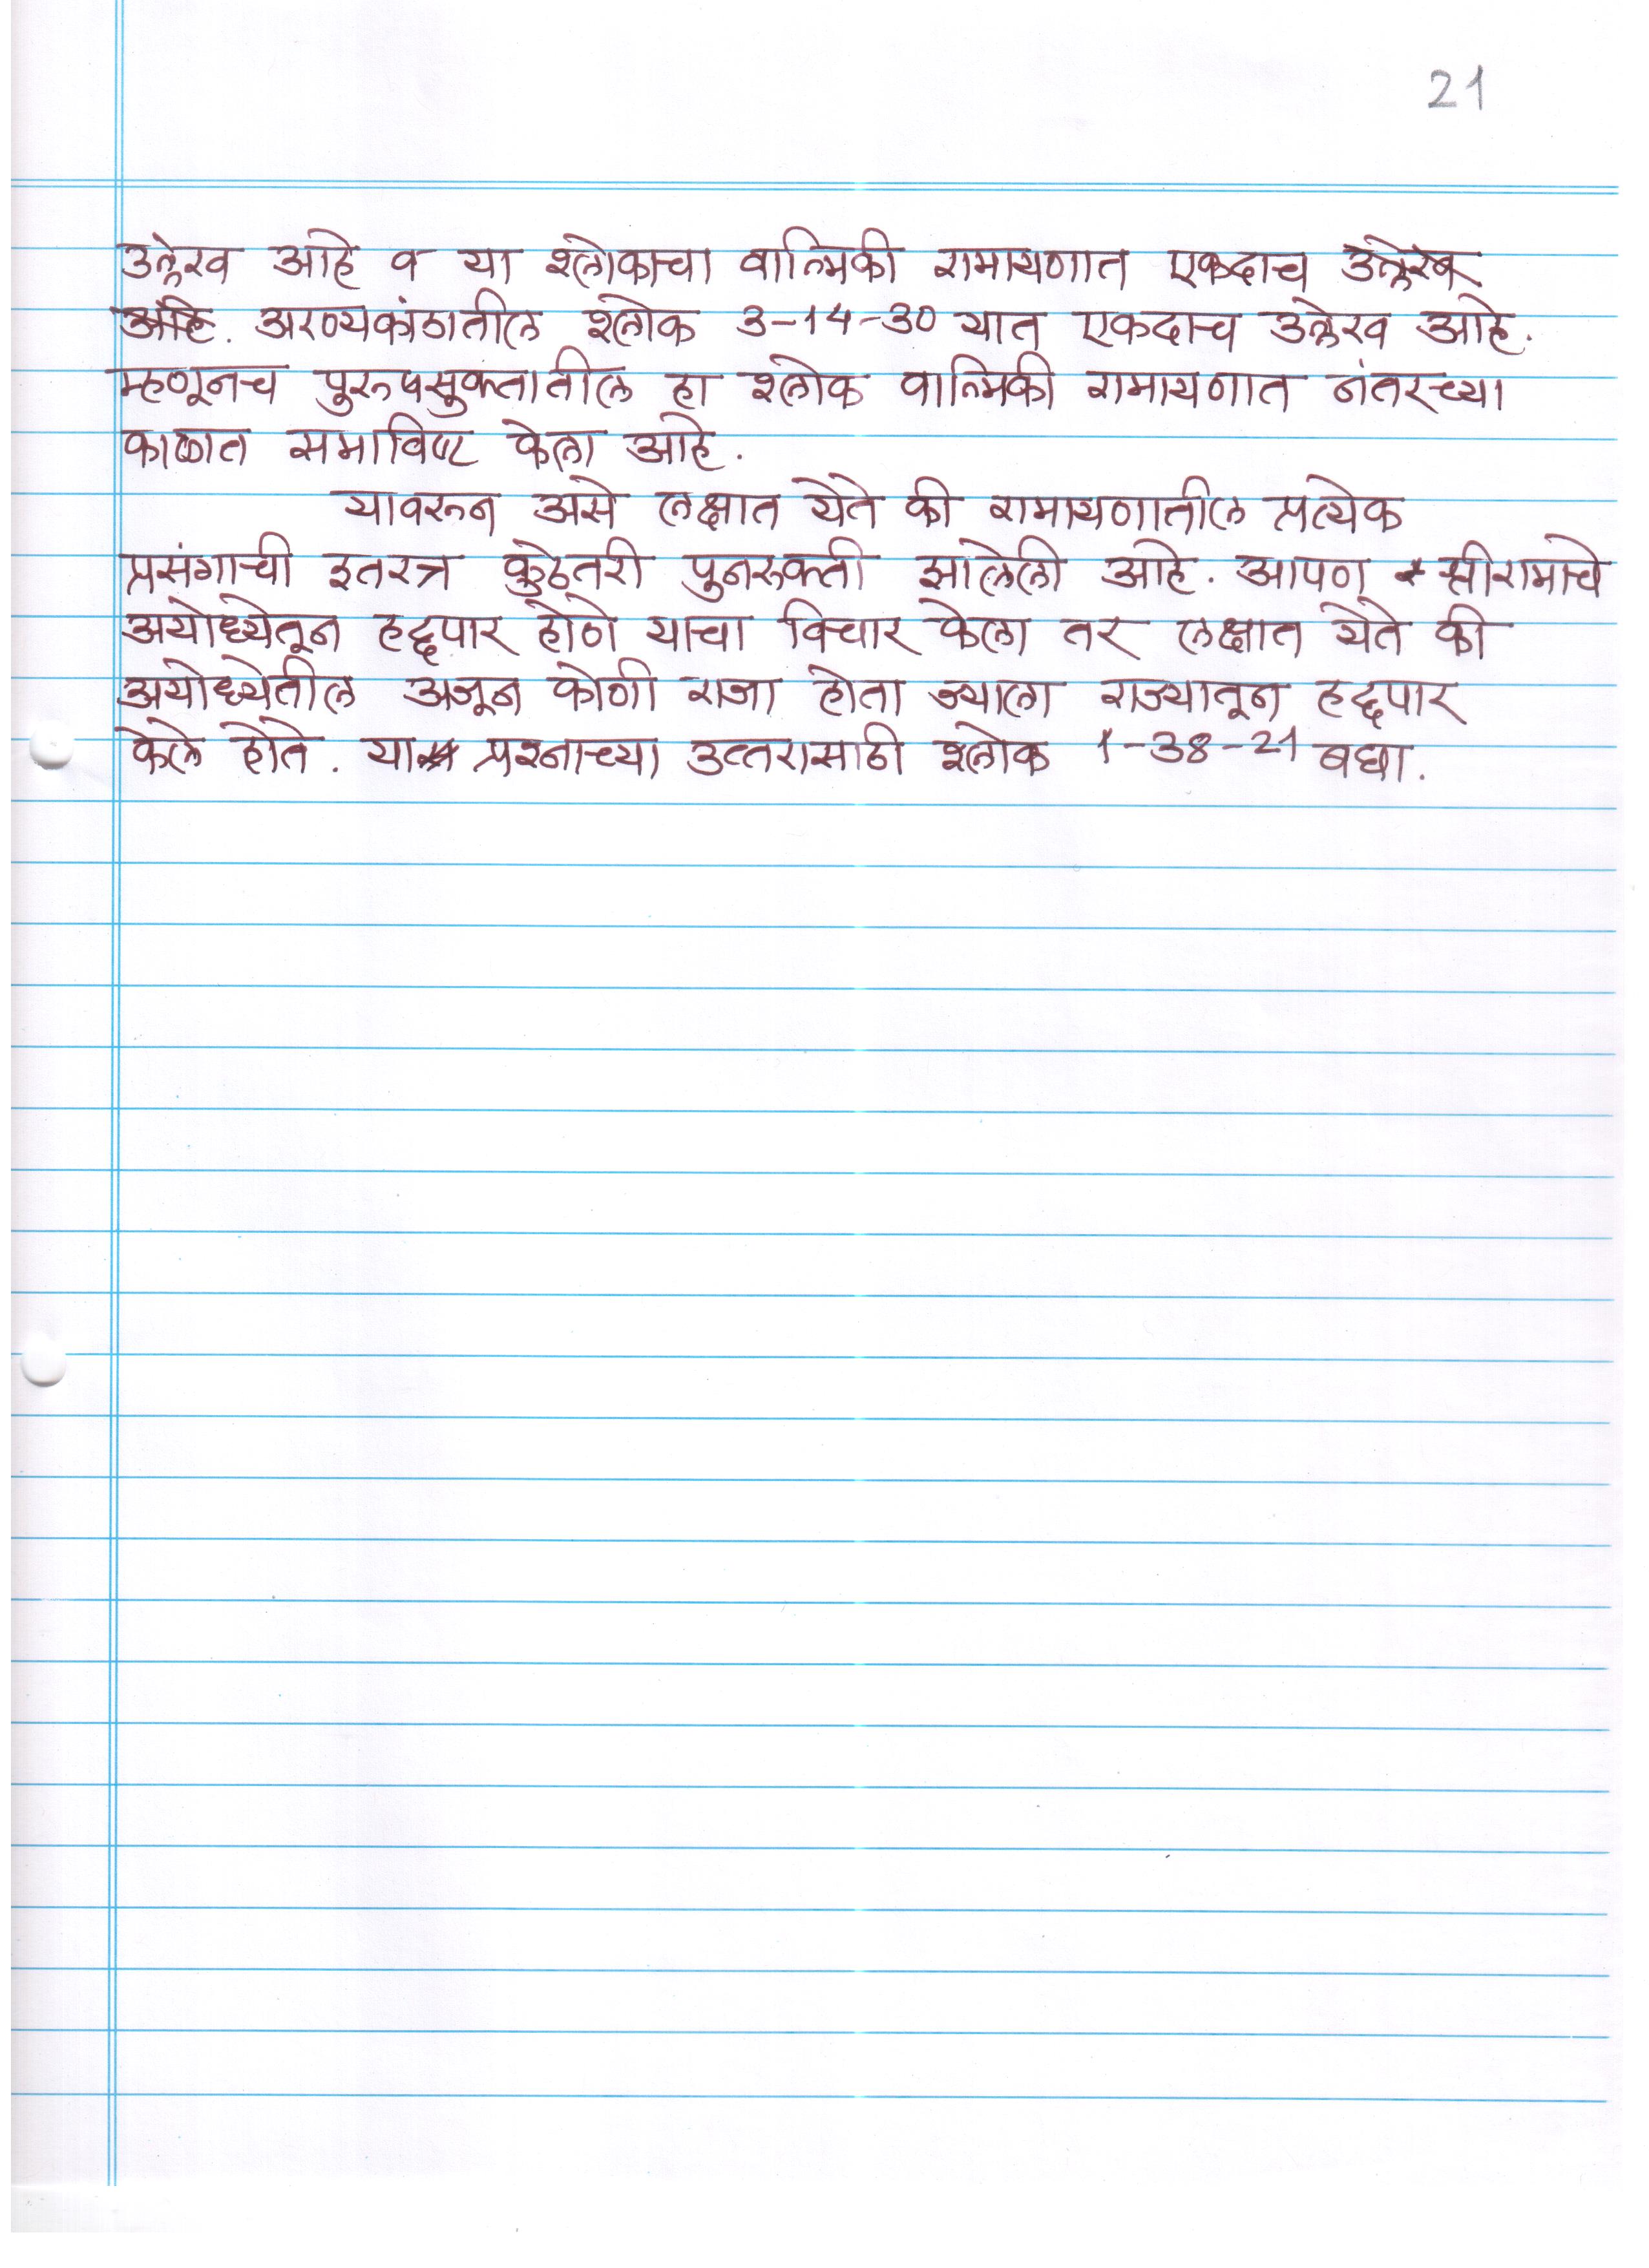 21
उल्लेख आहे व या श्लोकाचा वाल्मिकी रामायणात एकदाच उल्लेख
आहे. अरण्यकांडातील श्लोक 3-14-30 यात एकदाच उल्लेख आहे.
म्हणूनच पुरुषसुक्तातील हा श्लोक वाल्मिकी रामायणात नंतरच्या
काळात समाविष्ट केला आहे.
यावरून असे लक्षात येते की रामायणातील प्रत्येक
प्रसंगाची इतरत्र कुठेतरी पुनरुक्ती झालेली आहे. आपण श्रीरामाचे
अयोध्येतून हद्दपार होणे याचा विचार केला तर लक्षात येते की
अयोध्येतील अजून कोणी राजा होता ज्याला राज्यातून हद्दपार
केले होते. या प्रश्नाच्या उत्तरासाठी श्लोक 1-38-21 बघा.